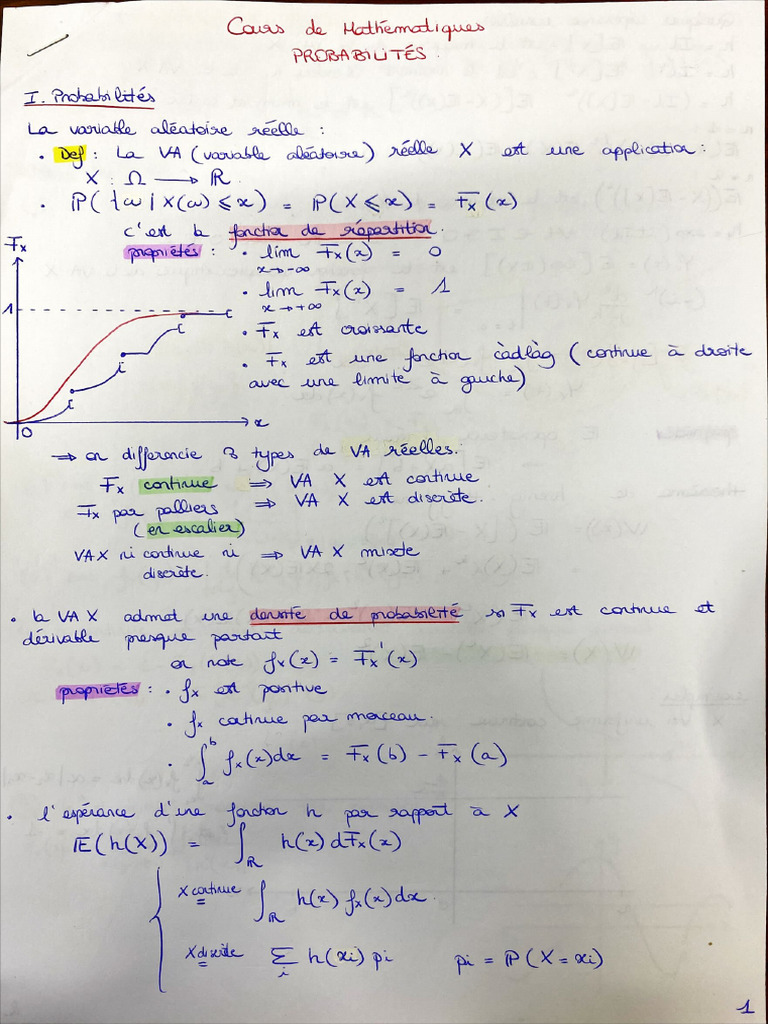 Cours de Mathématiques
PROBABILITÉS.
I. Probabilités
La variable aléatoire réelle :
• Def : La VA (variable aléatoire) réelle X est une application :
X : Ω → ℝ.
• ℙ({ω | X(ω) ⩽ x) = ℙ(X ⩽ x) = F_X(x)
c'est la fonction de répartition.
propriétés : • lim F_X(x) = 0
x→-∞
• lim F_X(x) = 1
x→+∞
• F_X est croissante
• F_X est une fonction càdlàg (continue à droite
avec une limite à gauche)
F_X
1
0
x
⇒ on differencie 3 types de VA réelles.
F_X continue ⇒ VA X est continue
F_X par palliers ⇒ VA X est discrète.
(en escalier)
VAX ni continue ni ⇒ VA X mixte
discrète.
• la VA X admet une densité de probabilité si F_X est continue et
dérivable presque partout
on note f_X(x) = F_X'(x)
propriétés : • f_X est positive
• f_X continue par morceau.
• ∫_a^b f_X(x)dx = F_X(b) - F_X(a)
• l'espérance d'une fonction h par rapport à X
𝔼(h(X)) = ∫_ℝ h(x) dF_X(x)
X continue ∫_ℝ h(x) f_X(x)dx.
X discrète Σ_i h(xi) pi pi = ℙ(X = xi)
1